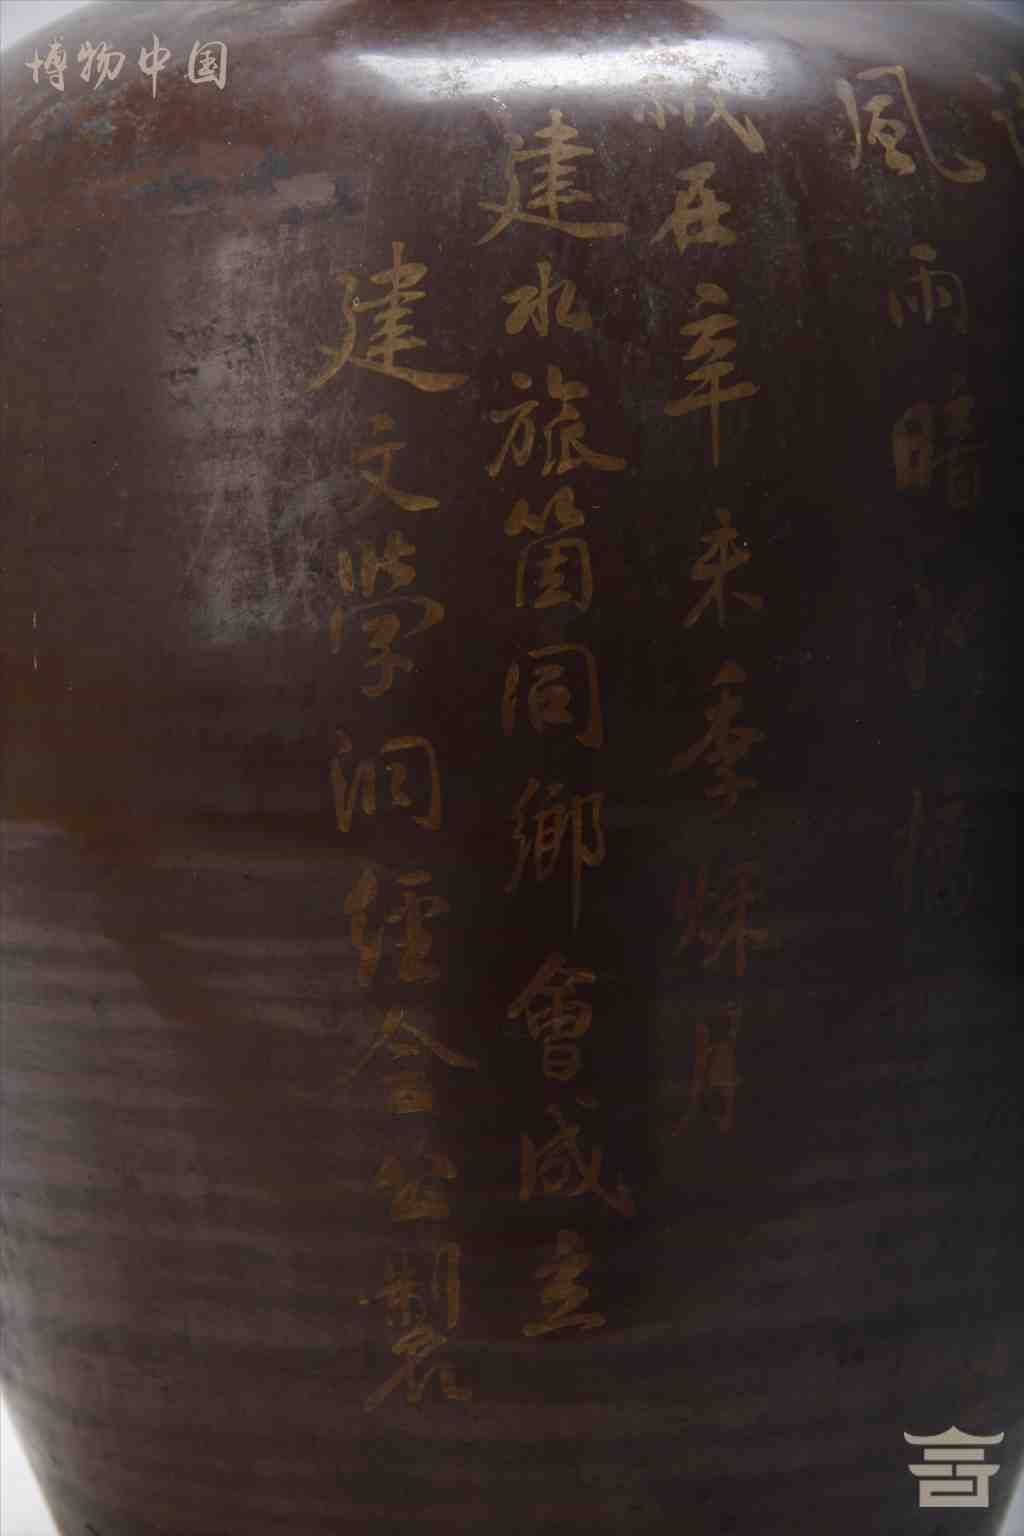 博物中国
風雨暗
歲在辛未季秌月
建水旅箇同鄉會成立
建文學洞經會公製